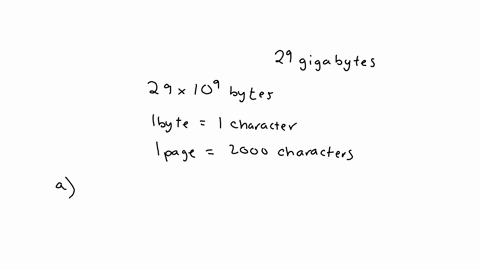 29 gigabytes
29 × 10⁹ bytes
1 byte = 1 character
1 page = 2000 characters
a)